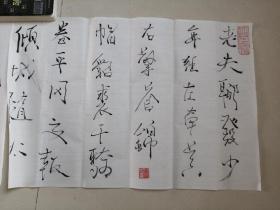 老夫聊發少
年狂左牽黃
右擎蒼錦
帽貂裘千騎
卷平岡為報
傾城隨